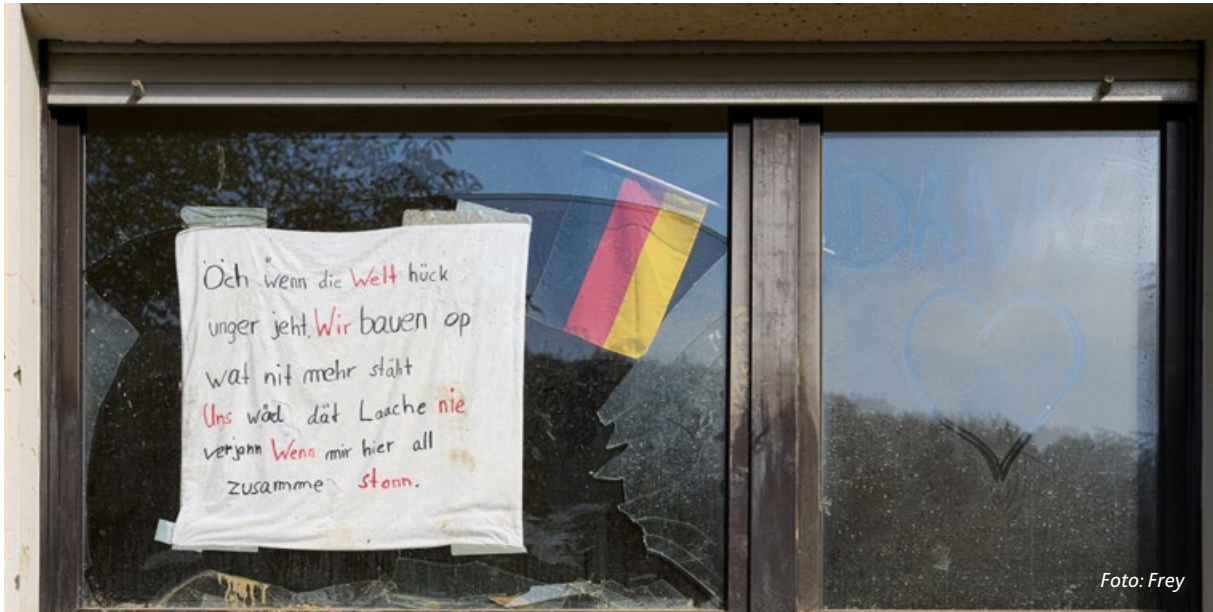 Och wenn die Welt hück
unger jeht, Wir bauen op
wat nit mehr stäht
Uns wåd dät Laache nie
verjonn Wenn mir hier all
zusamme stonn.
DANKE
Foto: Frey